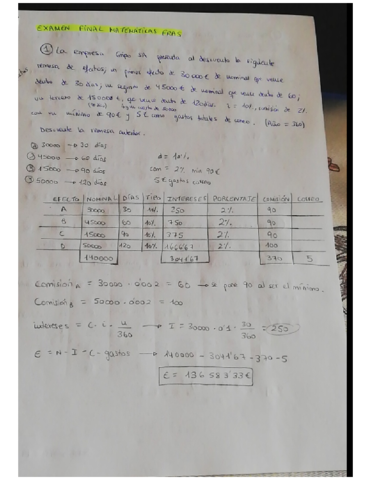 EXAMEN FINAL MATEMATICAS FRAS
① La empresa presenta al descuento la siguiente
remesa de efectos, un primer efecto de 30000€ de nominal que vence
dentro de 30 días, un segundo de 45000€ de nominal que vence dentro de 60,
con un mínimo de 90€ y 5€ como gastos totales de correo. (Año = 360)
Descuente la remesa
30000 → 30 días
45000 → 60 días
15000 → 90 días
50000 → 120 días
i = 10%
com = 2% min 90€
5€ gastos correo
EFECTO NOMINAL DÍAS TIPO INTERESES PORCENTAJE COMISIÓN CORREO
A 30000 30 10% 250 2% 90
B 45000 60 10% 750 2% 90
C 15000 90 10% 375 2% 90
D 50000 120 10% 1666'67 2% 100
140000 3041'67 370 5
Comisión A = 30000 · 0'002 = 60 → a 90 al ser el mínimo.
Comisión D = 50000 · 0'002 = 100
Intereses = C · i · n/360 → I = 30000 · 0'1 · 30/360 = 250
E = N - I - C - gastos → 140000 - 3041'67 - 370 - 5
E = 136583'33€